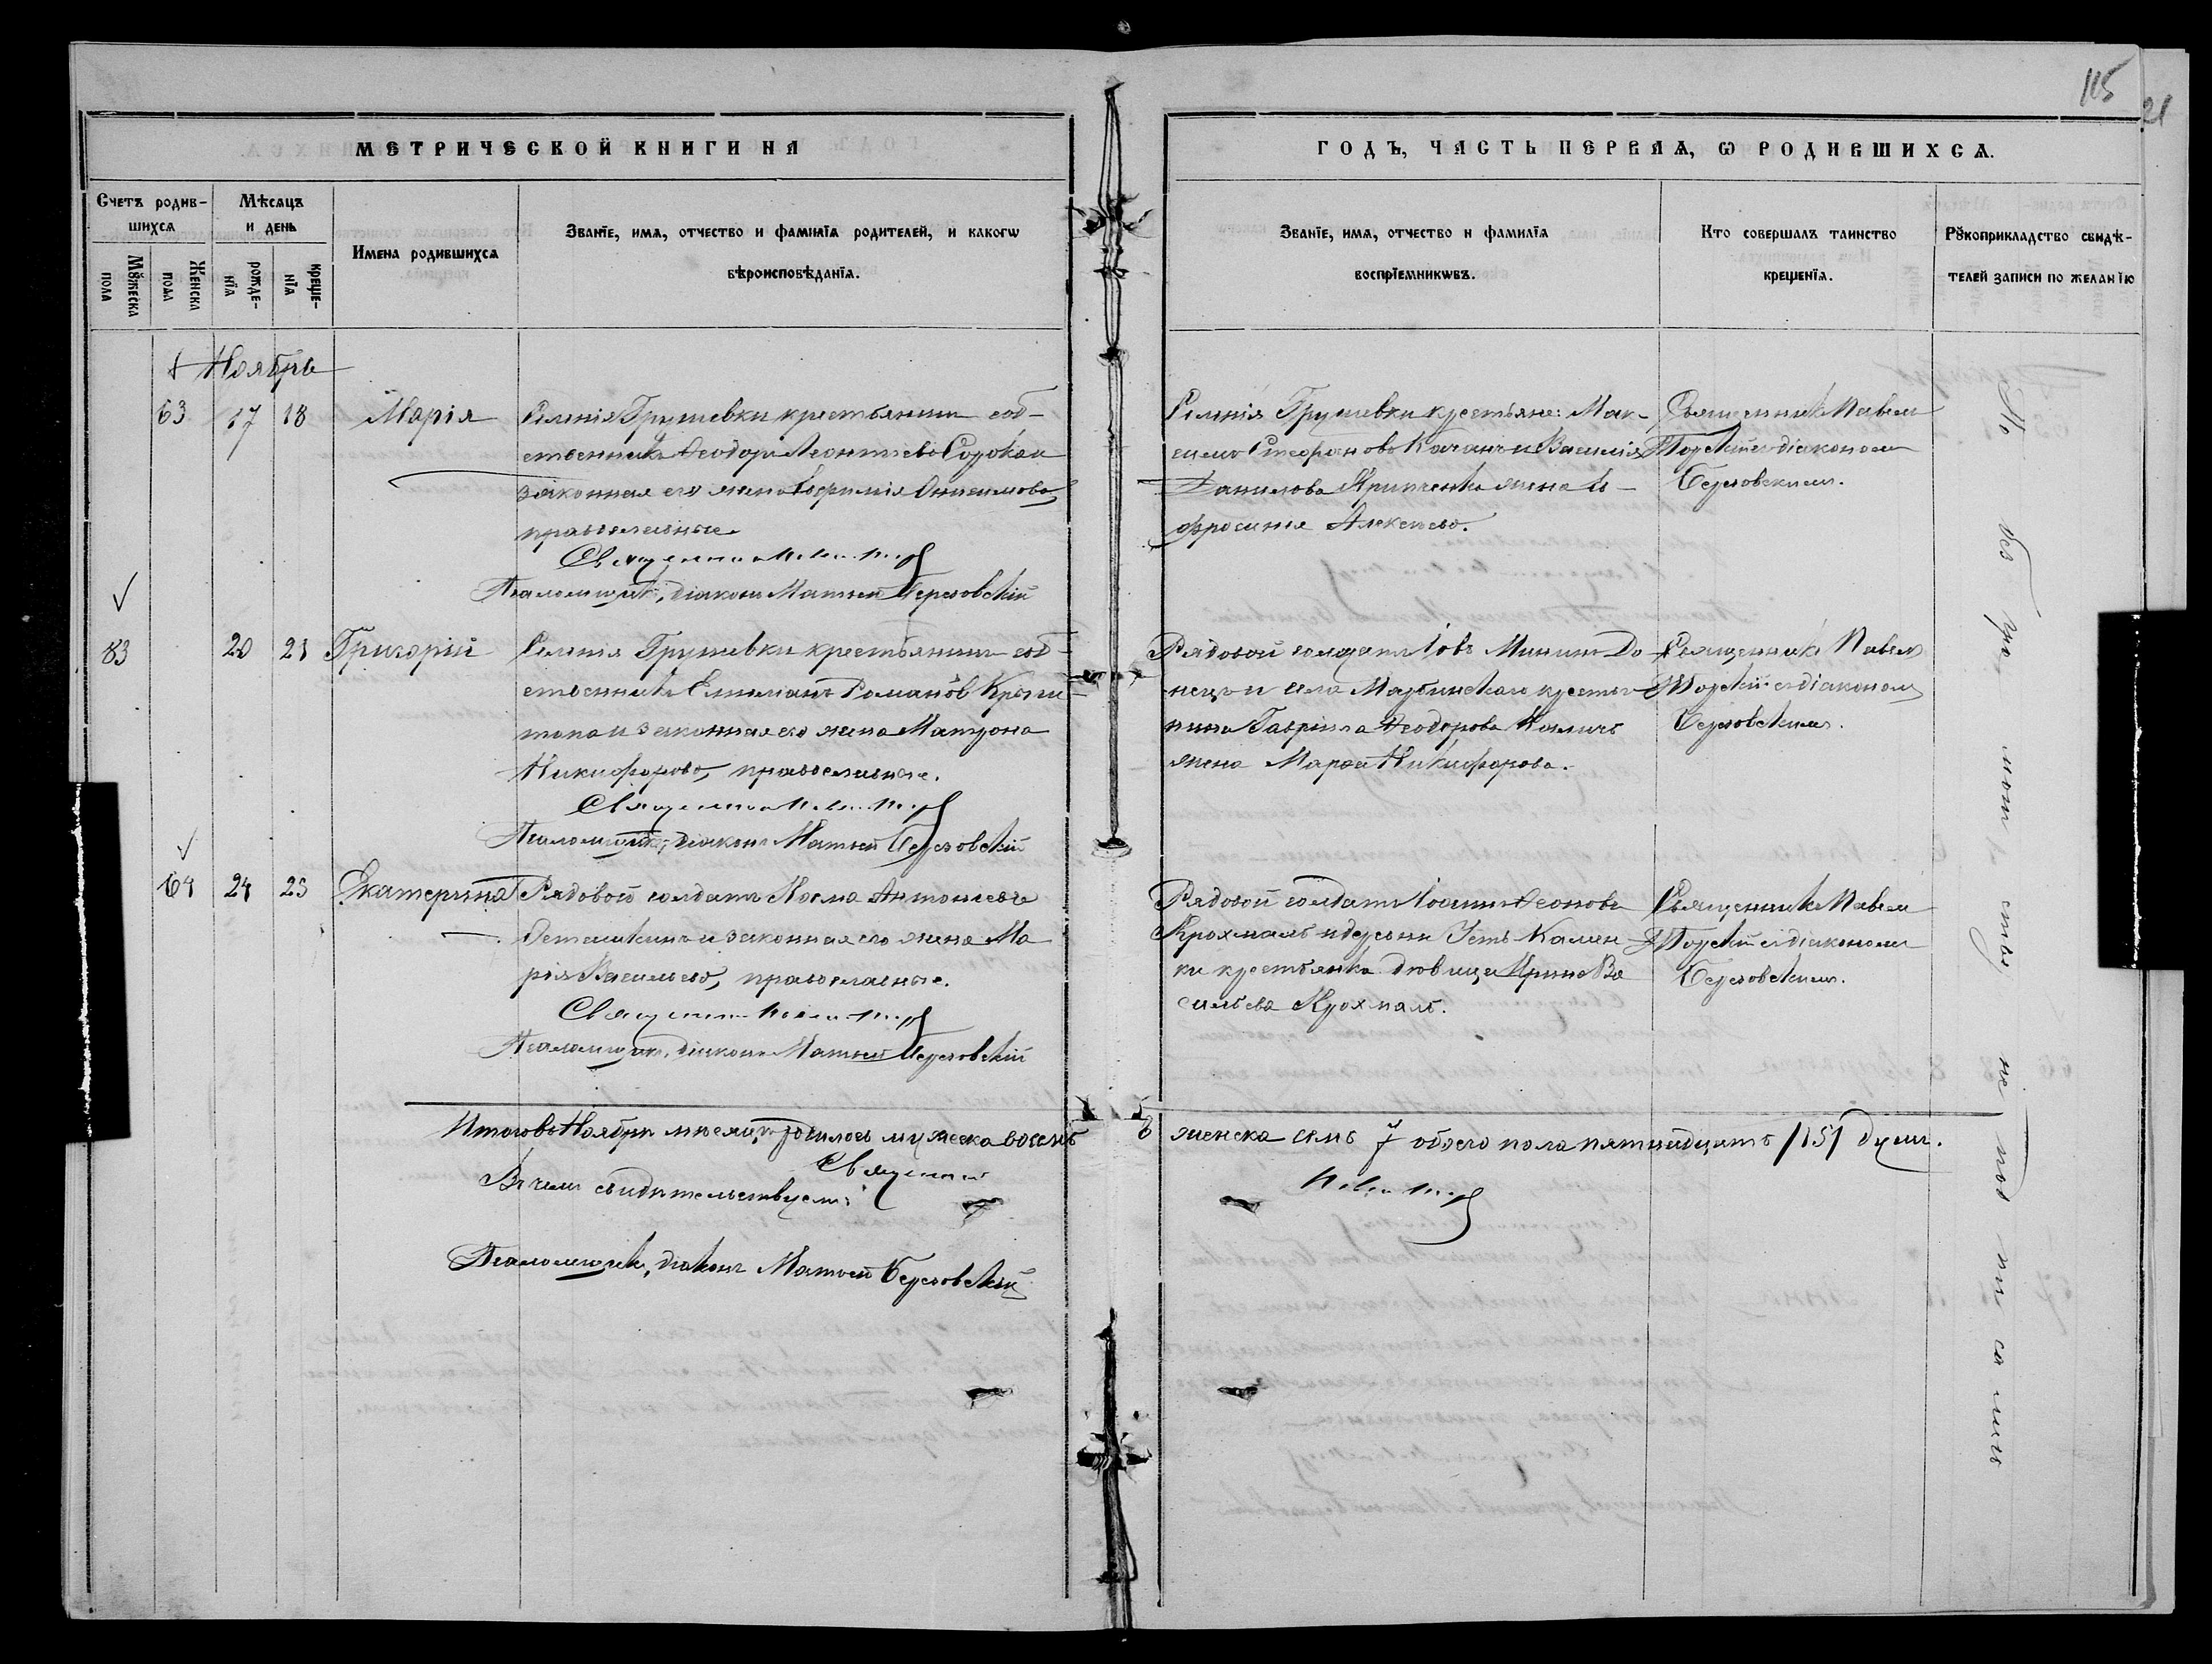 115
21
МЕТРИЧЕСКОЙ КНИГИ НА
ГОДЪ, ЧАСТЬ ПЕРВАЯ, Ѡ РОДИВШИХСѦ.
Счетъ родив-
шихсѧ
Мꙋжеска
пола
Женска
пола
Мѣсѧцъ
и день
рожде-
нїѧ
креще-
нїѧ
Имена родившихсѧ
Званїе, имѧ, отчество и фамилїѧ родителей, и какогѡ
вѣроисповѣданїѧ.
Званїе, имѧ, отчество и фамилїѧ
воспрїемникѡвъ.
Кто совершалъ таинство
крещенїѧ.
Рꙋкоприкладство свидѣ-
телей записи по желанїю
Ноябрь
63 17 18 Марія
Селенія Грушевки крестьянинъ соб-
ственникъ Ѳеодоръ Леонтьевъ Сорока и
законная его жена Евфимія Онисимова,
православные.
Священникъ
Псаломщикъ, діаконъ Матѳей Березовскій
Селенія Грушевки крестьяне: Мак-
симъ Стефановъ Качанъ и Василія
Данилова Крипченка жена Ев-
фросинія Алексѣева.
Священникъ Павелъ
съ діакономъ
Березовскимъ.
83 20 21 Григорій
Селенія Грушевки крестьянинъ соб-
ственникъ Емиліанъ Романовъ Кропи-
тона и законная его жена Матрона
Никифорова, православные.
Священникъ
Псаломщикъ, діаконъ Матѳей Березовскій
Рядовой солдатъ Іовъ Мининъ До-
нецъ и села Марьинскаго крестья-
нина Гавріила Ѳеодорова
жена Марѳа Никифорова.
Священникъ Павелъ
съ діакономъ
Березовскимъ.
64 24 25 Екатерина
Рядовой солдатъ Косма Антоніевъ
и законная его жена Ма
рія Васильева, православные.
Священникъ
Псаломщикъ, діаконъ Матѳей Березовскій
Рядовой солдатъ Іоаннъ Леоновъ
Крохмаль и деревни Усть-Камян-
ки крестьянка дѣвица Ирина Ва
сильева Крохмаль.
Священникъ Павелъ
съ діакономъ
Березовскимъ.
Итого въ Ноябрѣ мѣсяцѣ родилось мужеска восемь 8 женска семь 7 обоего пола пятнадцать /15/ душъ.
Въ чемъ свидѣтельствуемъ:
Священникъ
Псаломщикъ, діаконъ Матѳей Березовскій
По безграмотству не подписались